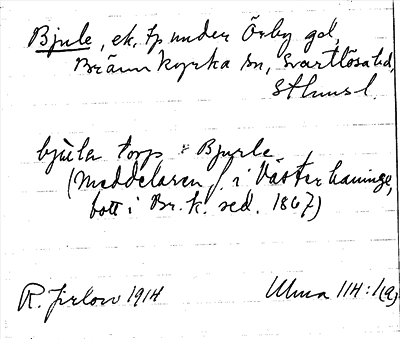 Bjule, ek, tp under Örby gd,
Brännkyrka sn, Svartlösa hd,
Sthms l.
bjùla torp = Bjurle
(Meddelaren f. i Västerhaninge,
bott i Br.k. sed. 1867)
R. Jirlow 1914 Ulma 114:1(9)